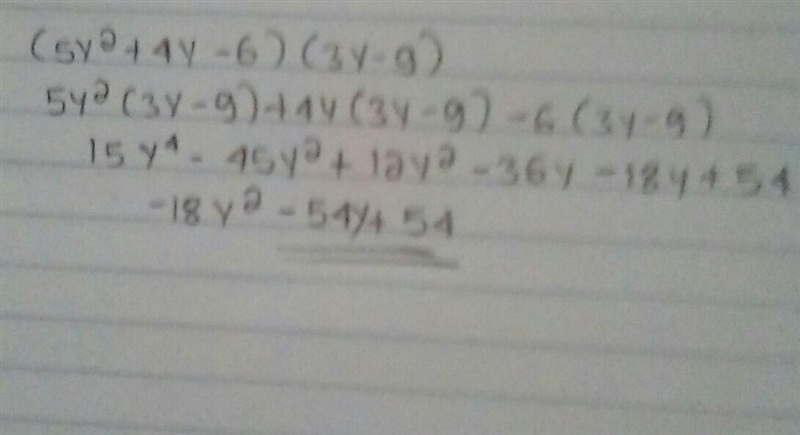 (5y²+4y-6)(3y-9)
5y²(3y-9)+4y(3y-9)-6(3y-9)
15y⁴-45y²+12y²-36y-18y+54
-18y²-54y+54